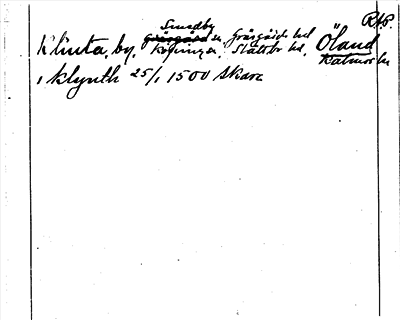 RAP.
Smedby
Klinta, by, Gräsgård sn, Gräsgårds hd Öland
Köpinge, Slättbo hd, Kalmar län
i klynth 25/1 1500 Skara